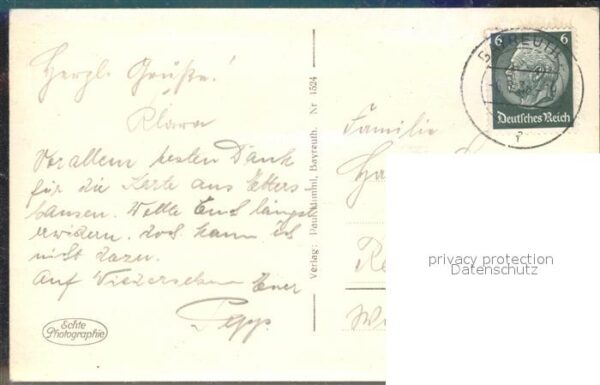 Herzl. Grüße!
Klara
Vor allem besten Dank
für die Karte aus Etters-
hausen. Wollte Euch längst
erwidern. doch kam ich
nicht dazu.
Auf Wiedersehen Euer
Pepp.
Echte
Photographie
Verlag: Paul Mühl, Bayreuth. Nr 1524
BAYREUTH
6 6
Deutsches Reich
Familie
privacy protection
Datenschutz